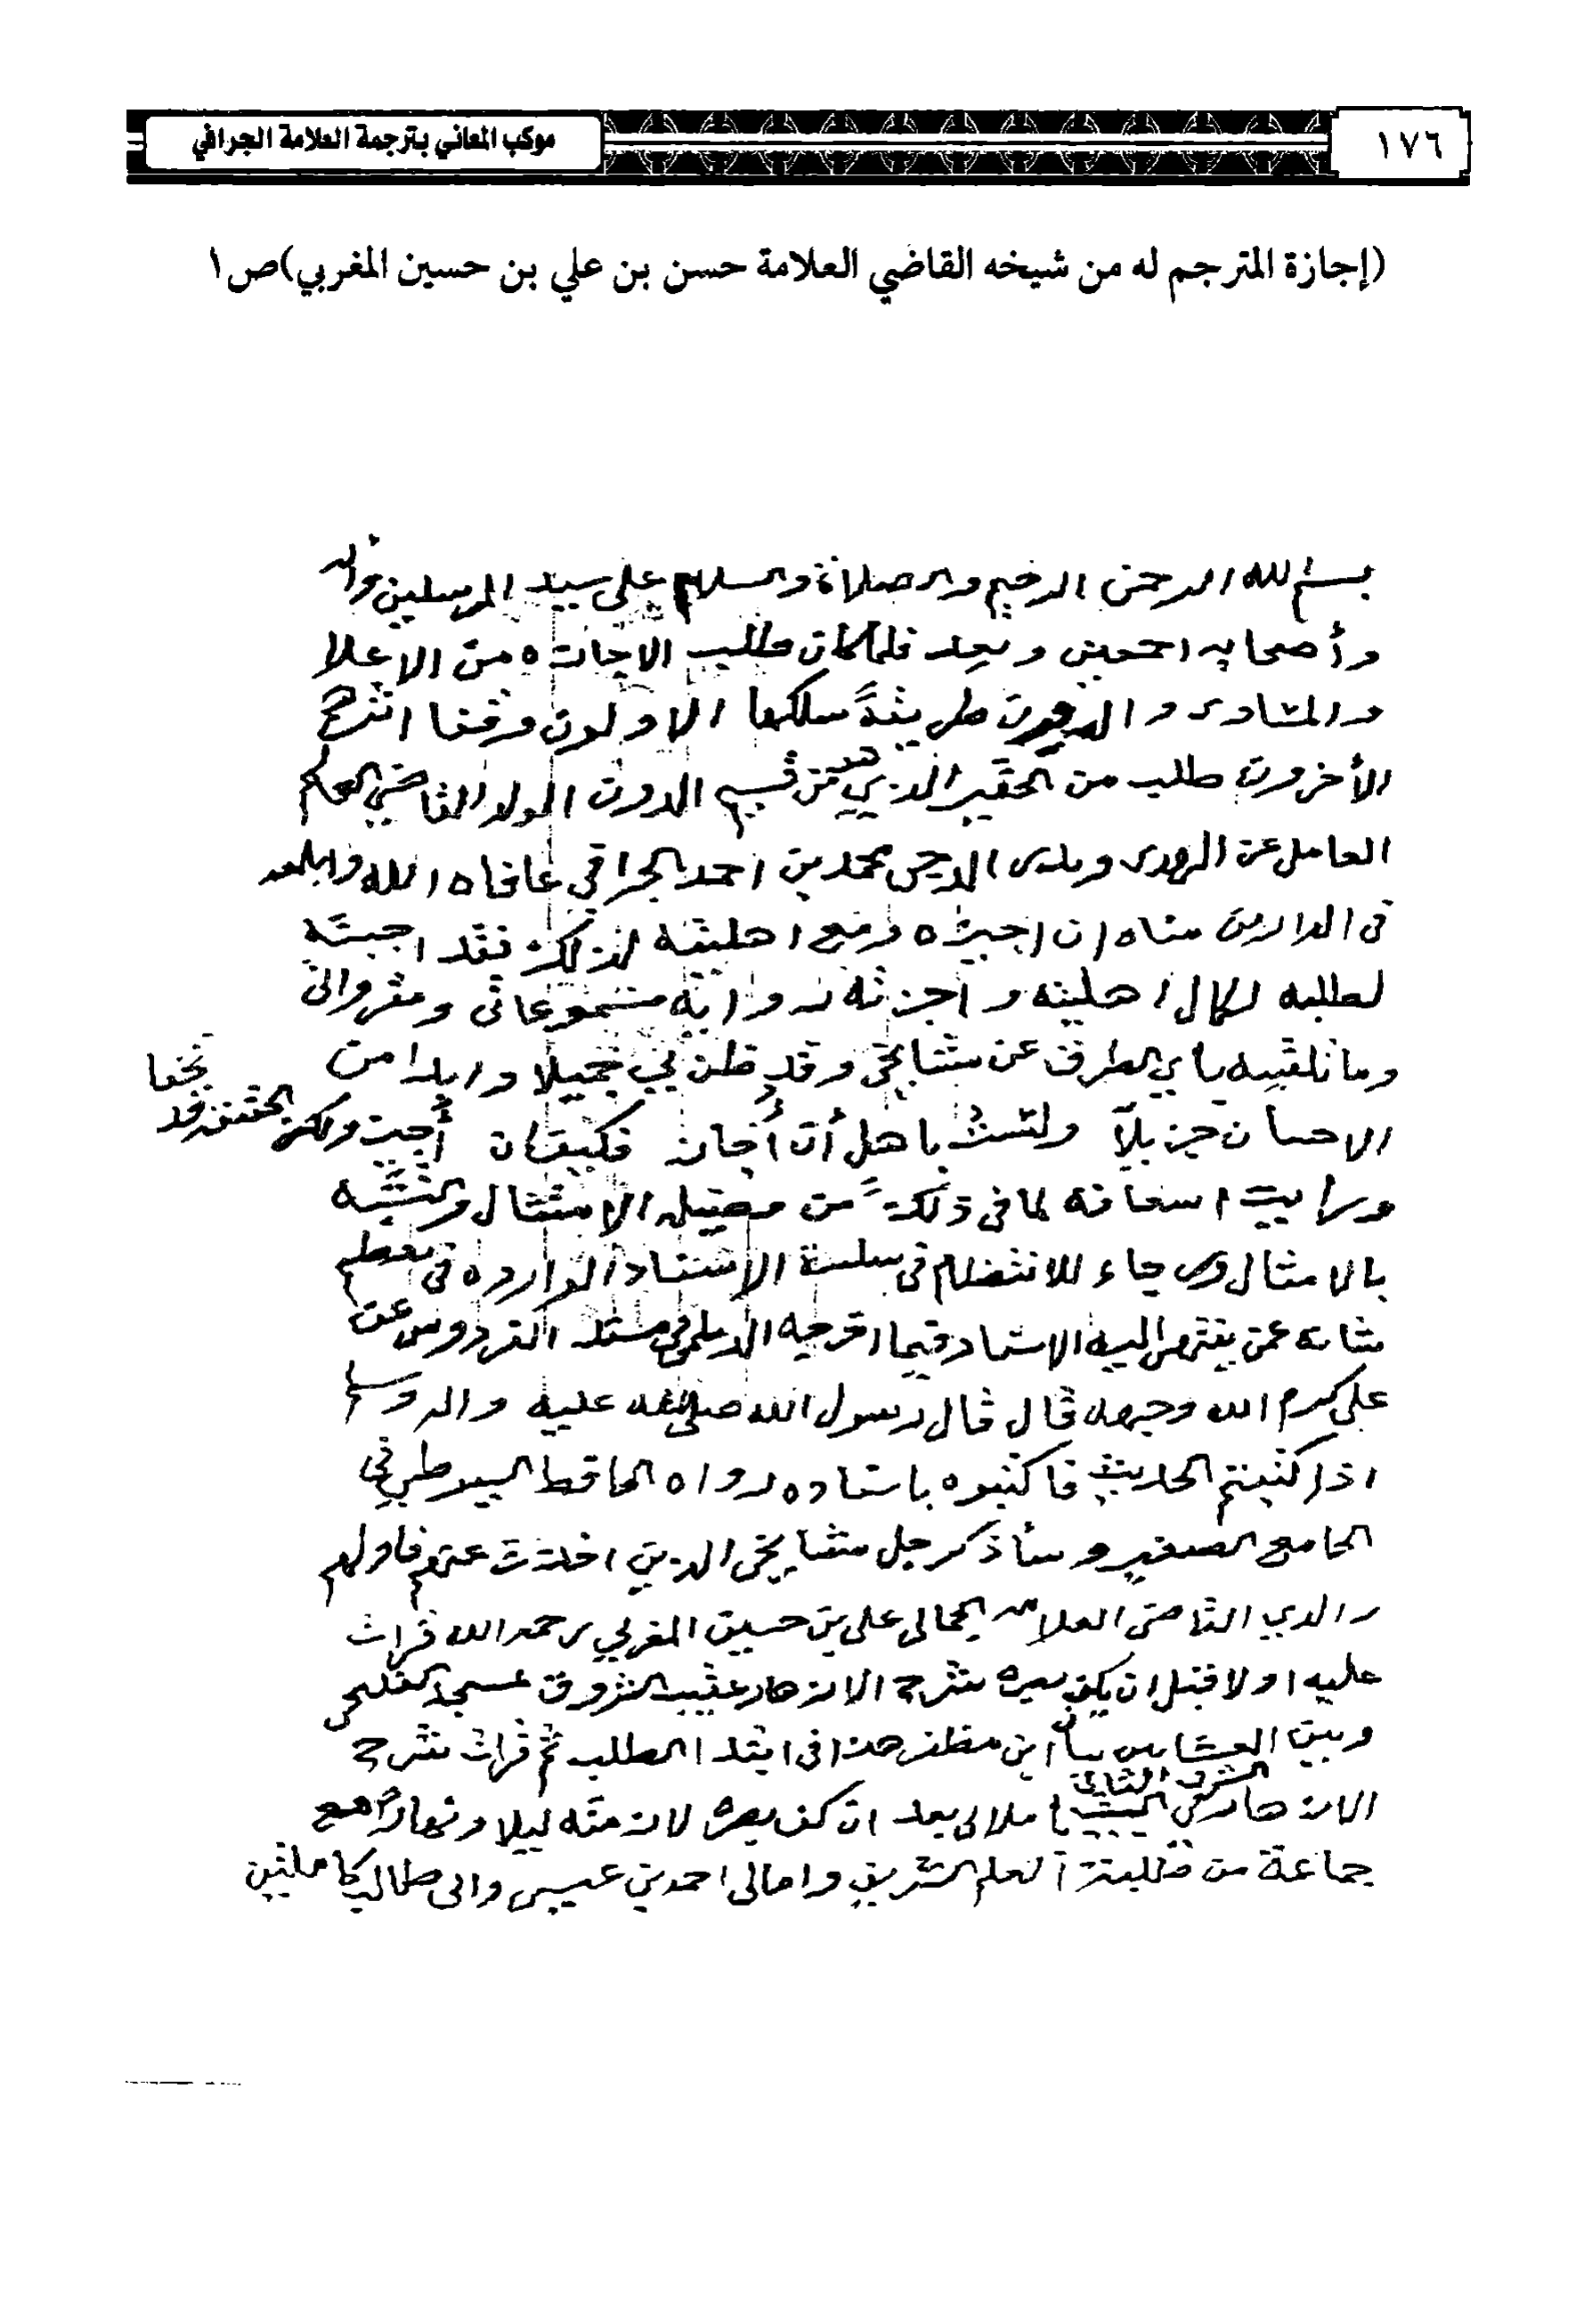 ١٧٦
موكب المعاني بترجمة العلامة الجرافي
(إجازة المترجم له من شيخه القاضي العلامة حسن بن علي بن حسين المغربي)ص١
بسم الله الرحمن الرحيم والصلاة والسلام على سيد المرسلين وآله
وأصحابه اجمعين وبعد فلما كان طلب الاجازه من الاعلا
والمساوى والدون طريقةً سلكها الاولون وقفا اثرهم
الأخرون طلب من الحقير الذي هو من قسم الدون الولد القاضي العالم
العامل عز الهدى وبدى الدين محمد بن احمد الجرافي عافاه الله وابلغه
فى الدارين مناه ان اجيزه ومع اهليته لذلك فقد اجبته
لطلبه لكمال اهليته واجزته رواية مسموعاتى ومقرواتى
وما تلقيته باي الطرق عن مشايخى وقد ظن بي جميلا وابدا من
الاحسان جزيلاً ولست باهل أن أُجاز فكيف ان أُجيز ولكن الحقيقة قد تخفا
ورايت اسعافه لما فى ذلك من فضيلة الامتثال والتشبه
بالامثال ورجاء للانتظام فى سلسة الاسناد الوارده فى معظم
شانه عمن ينتهى اليه الاسناد فيما اخرجه الديلمي فى مسند الفردوس عن
على كرم الله وجهه قال قال رسول الله صلى الله عليه واله وسلم
اذا كتبتم الحديث فاكتبوه باسناده رواه الحافظ السيوطي في
الجامع الصغير وسأذكر جل مشايخى الذين اخذت عنهم فاولهم
والدي القاضى العلامه الجمالى على بن حسين المغربي رحمه الله قرات
عليه اولا قبل ان يكف بصره شرح الازهار عقيب الشروق بمسجد الفليحى
وبين العشاءين بيان ابن مظفر هذا فى ابتدا الطلب ثم قرات شرح
الازهار فى البيت الشرف الثانى باملالى بعد ان كف بصره لازمته ليلا ونهاراً مع
جماعة من طلبة العلم الشريف وامالى احمد بن عيسى وابى طالب كاملتين